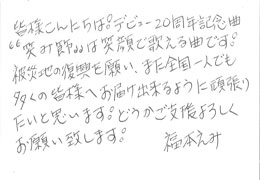 皆様こんにちは!デビュー20周年記念曲
“笑み節”は笑顔で歌える曲です。
被災地の復興を願い、また全国一人でも
多くの皆様へお届け出来るように頑張り
たいと思います。どうかご支援よろしく
お願い致します。 福本えみ